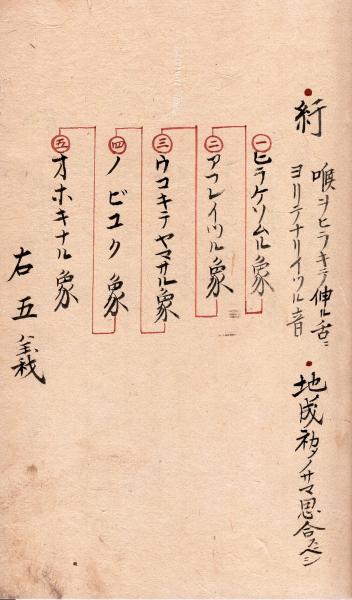 紆 喉ヲヒラキテ伸ル舌ニ
ヨリテナリイツル音
地成初ノサマ思合スヘシ
一 ヒラケソムル象
二 アフレイツル象
三 ウコキテヤマサル象
四 ノビユク象
五 オホキナル象
右五義